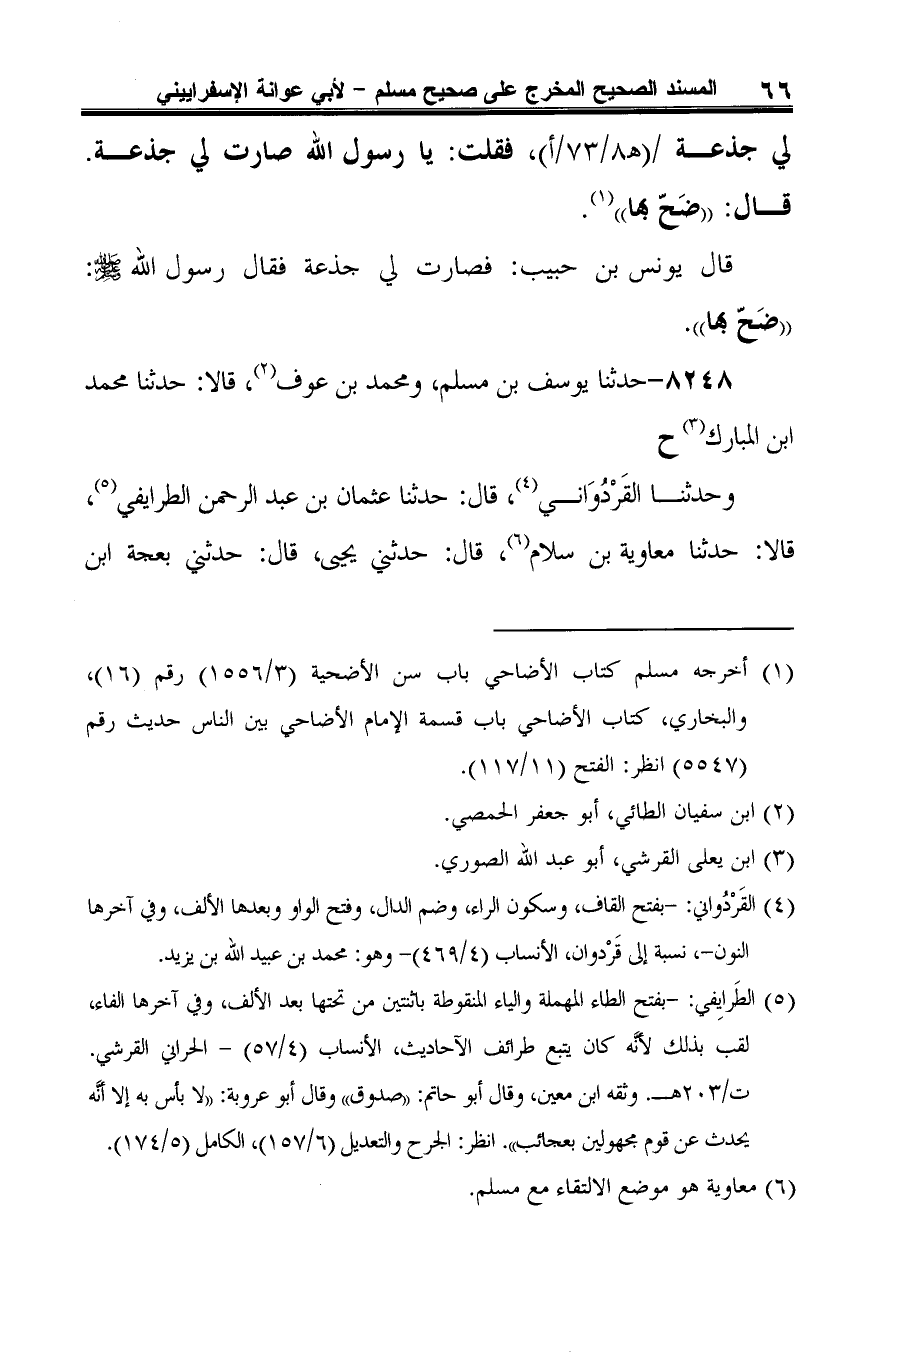 ٦٦ المسند الصحيح المخرج على صحيح مسلم - لأبي عوانة الإسفراييني
لي جذعـــة /(هـ٧٣/٨/أ)، فقلت: يا رسول الله صارت لي جذعـــة.
قـــال: ((ضَحِّ بها))(١).
قال يونس بن حبيب: فصارت لي جذعة فقال رسول الله ﷺ:
((ضَحِّ بها)).
٨٢٤٨-حدثنا يوسف بن مسلم، ومحمد بن عوف(٢)، قالا: حدثنا محمد
ابن المبارك(٣) ح
وحدثنـــا القَرْدُوَانـــي(٤)، قال: حدثنا عثمان بن عبد الرحمن الطرايفي(٥)،
قالا: حدثنا معاوية بن سلام(٦)، قال: حدثني يحيى، قال: حدثني بعجة ابن
(١) أخرجه مسلم كتاب الأضاحي باب سن الأضحية (١٥٥٦/٣) رقم (١٦)،
والبخاري، كتاب الأضاحي باب قسمة الإمام الأضاحي بين الناس حديث رقم
(٥٥٤٧) انظر: الفتح (١١٧/١١).
(٢) ابن سفيان الطائي، أبو جعفر الحمصي.
(٣) ابن يعلى القرشي، أبو عبد الله الصوري.
(٤) القَرْدُواني: -بفتح القاف، وسكون الراء، وضم الدال، وفتح الواو وبعدها الألف، وفي آخرها
النون-، نسبة إلى قَرْدوان، الأنساب (٤٦٩/٤)- وهو: محمد بن عبيد الله بن يزيد.
(٥) الطَرايِفي: -بفتح الطاء المهملة والياء المنقوطة باثنتين من تحتها بعد الألف، وفي آخرها الفاء،
لقب بذلك لأنَّه كان يتبع طرائف الآحاديث، الأنساب (٥٧/٤) - الحراني القرشي.
ت/٢٠٣هـ. وثقه ابن معين، وقال أبو حاتم: «صدوق» وقال أبو عروبة: «لا بأس به إلا أنَّه
يحدث عن قوم مجهولين بعجائب». انظر: الجرح والتعديل (١٥٧/٦)، الكامل (١٧٤/٥).
(٦) معاوية هو موضع الالتقاء مع مسلم.